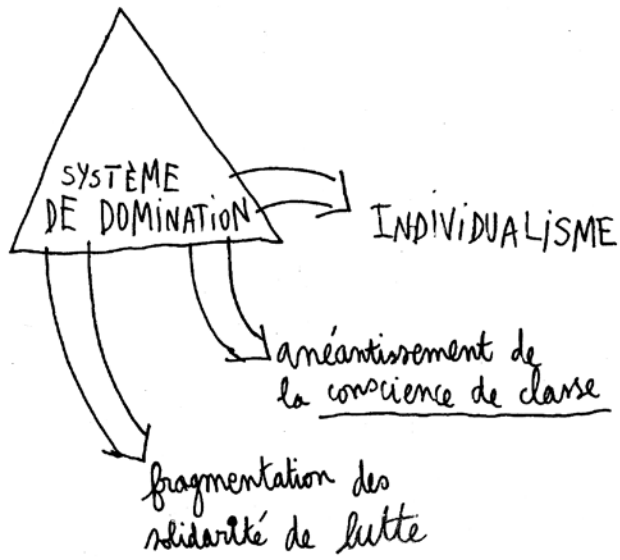 SYSTÈME
DE DOMINATION
INDIVIDUALISME
anéantissement de
la conscience de classe
fragmentation des
solidarité de lutte